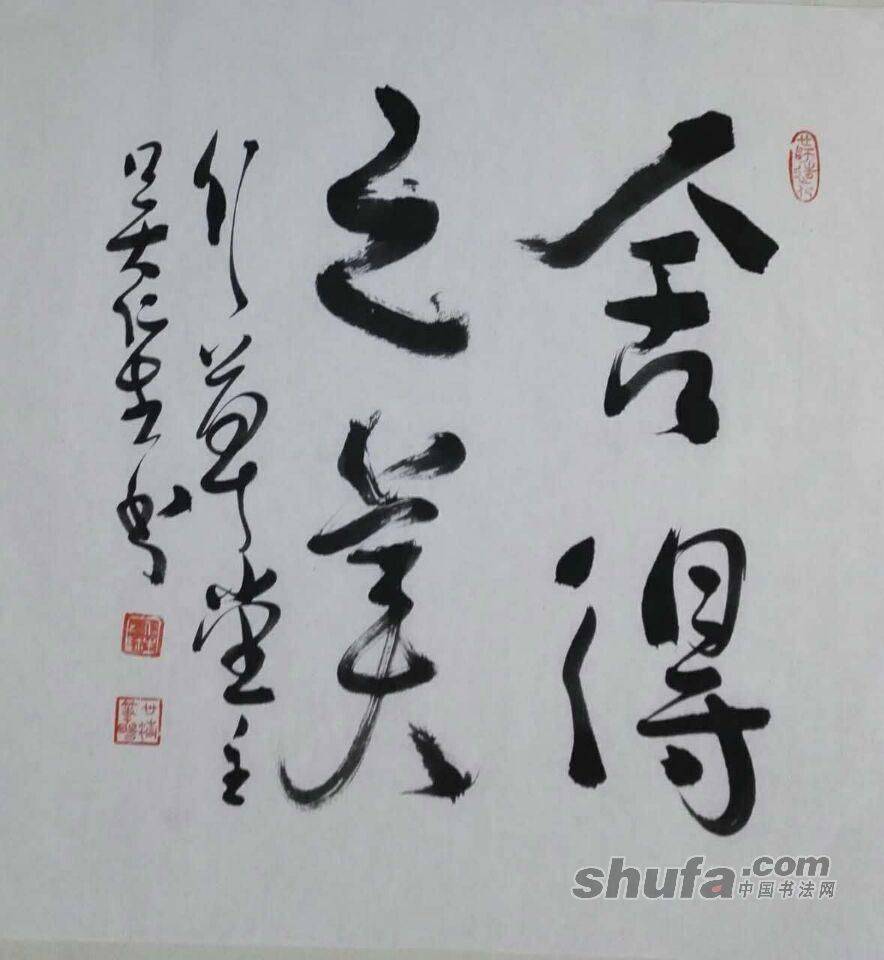 舍得
之美
行草堂主
吴仁书
shufa.com
中国书法网